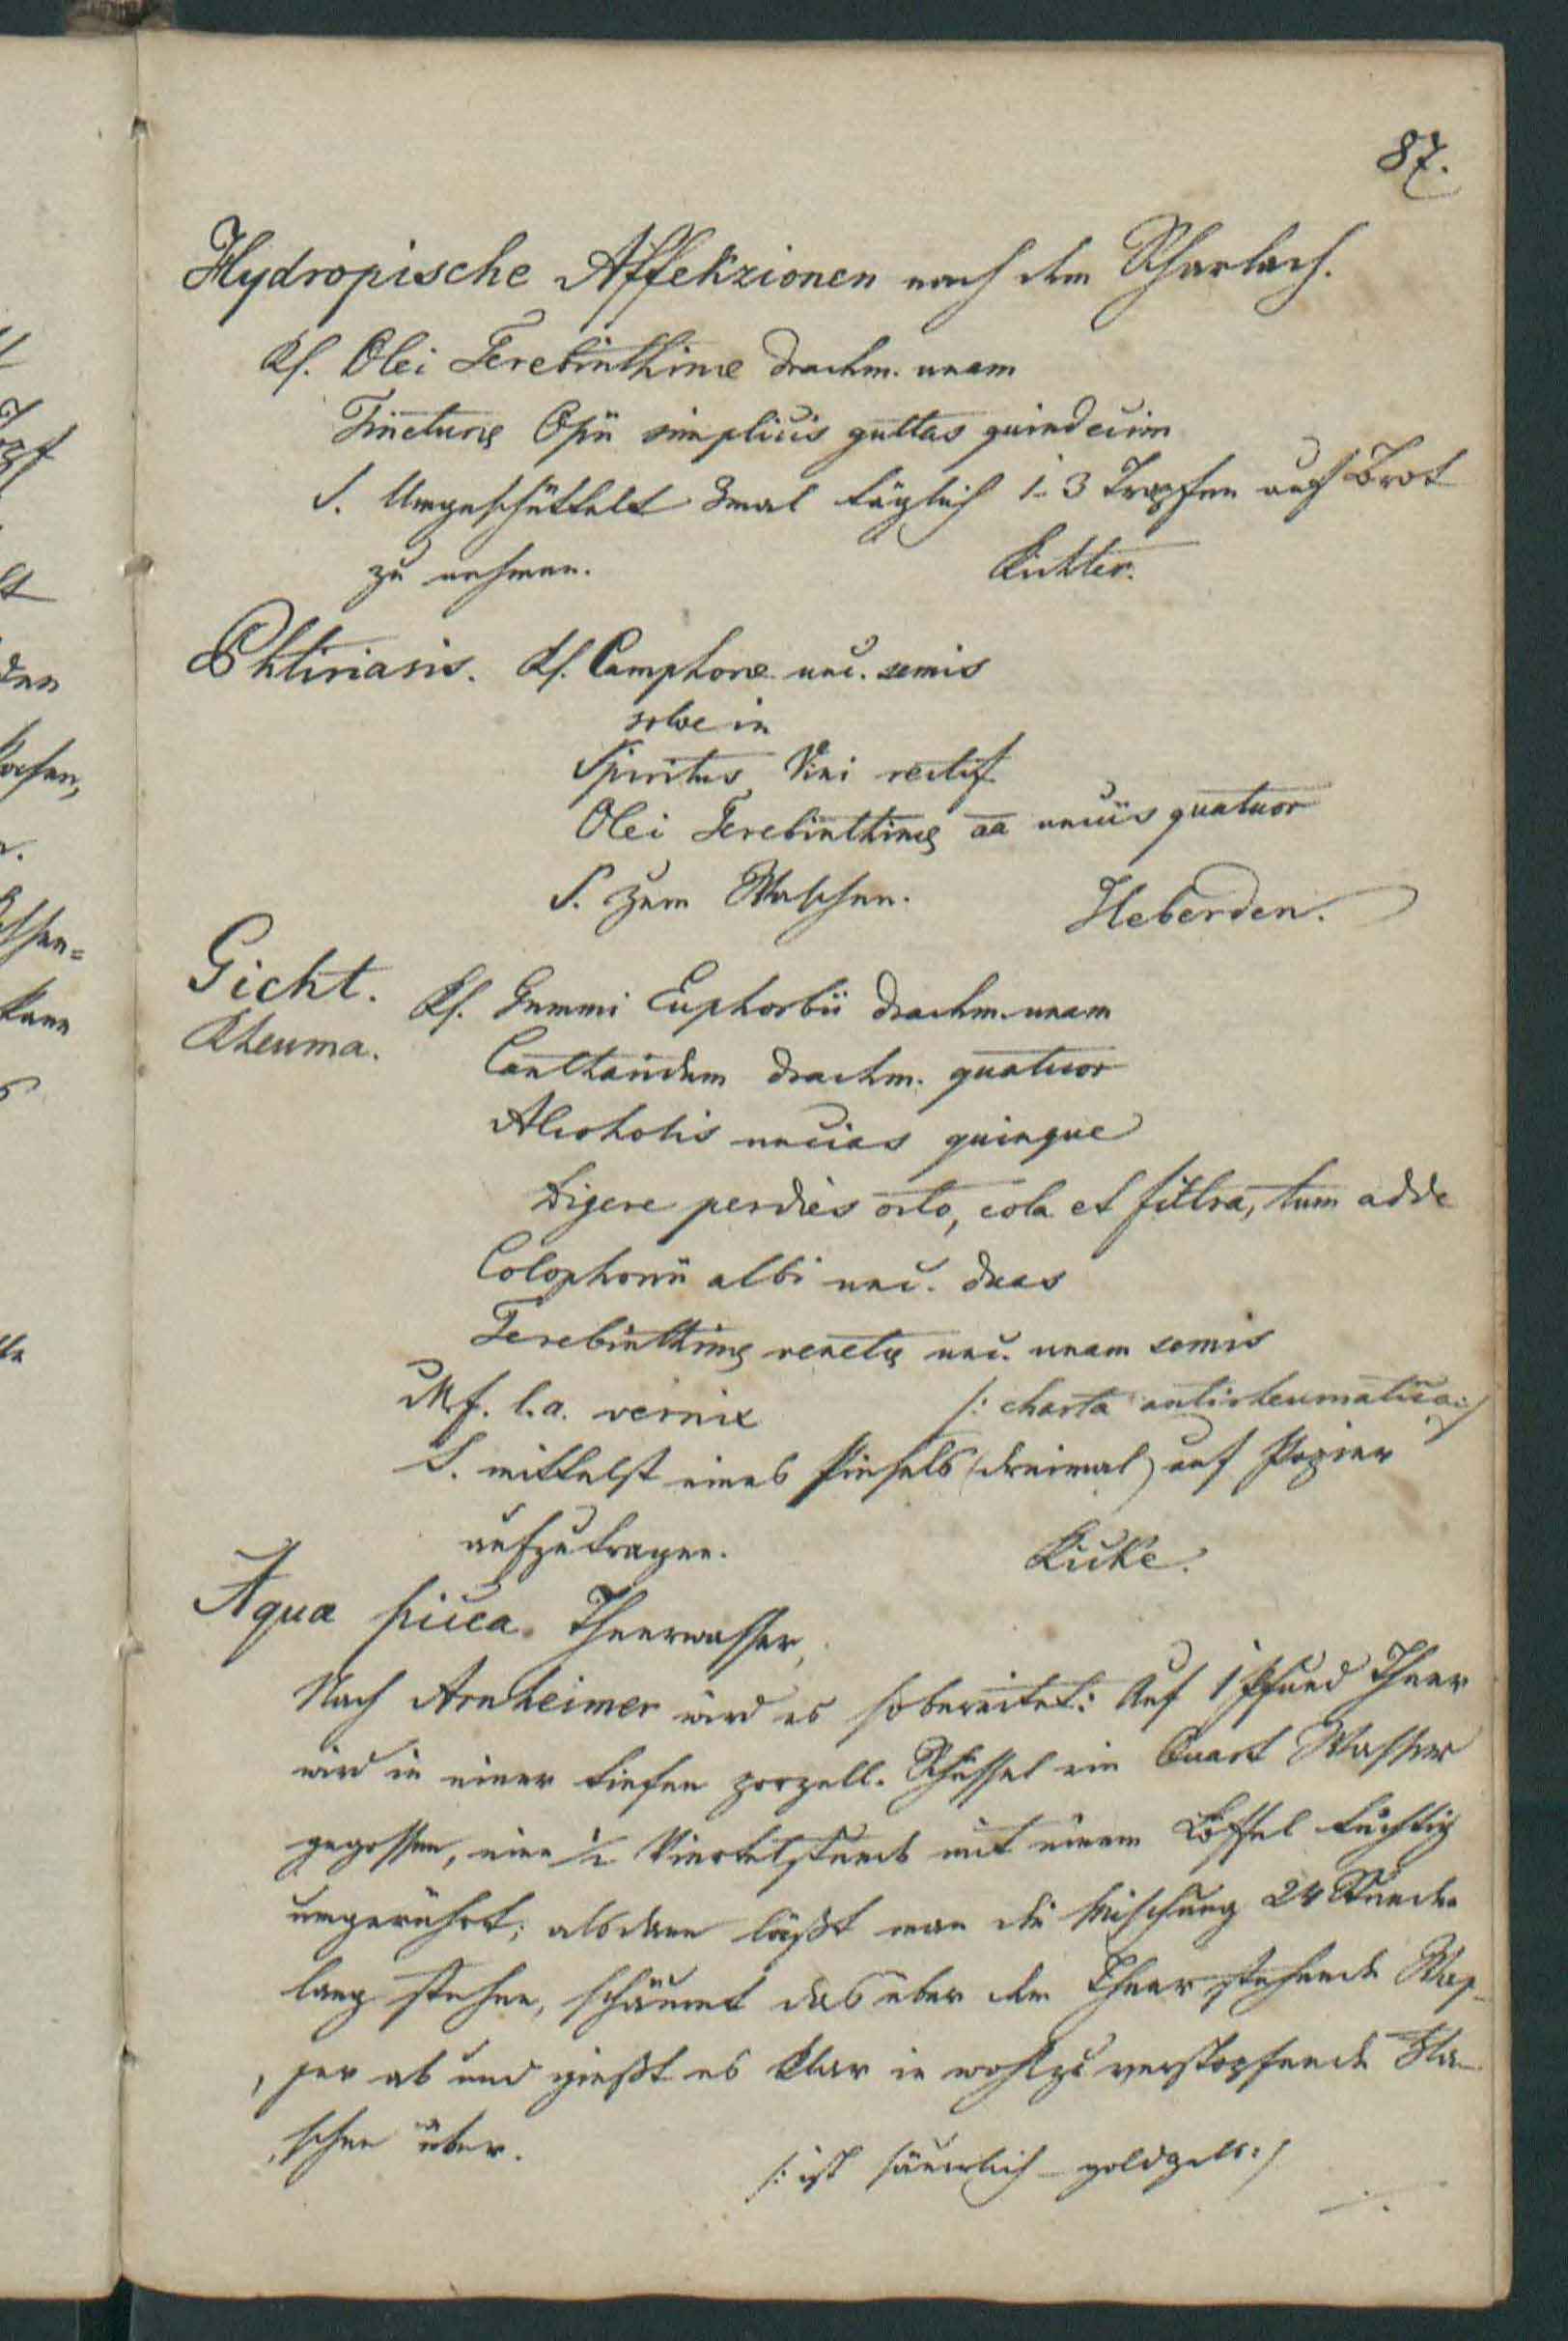 87.
Hydropische Affekzionen nach dem Scharlach.
Rf. Olei Terebinthinæ drachm. unam
Tincturæ Opii simplicis guttas quindecim
S. Umgeschüttelt 3mal täglich 1-3 Tropfen auf Brot
zu nehmen. Richter.
Phtiriasis. Rf. Camphoræ unc. semis
solve in
Spiritus Vini rectif
Olei Terebinthinæ aa unciis quatuor
S. Zum Waschen. Heberden.
Gicht.
Rheuma.
Rf. Gummi Euphorbii drachm. unam
Cantharidum drachm. quatuor
Alcoholis uncias quinque
digere per dies octo, cola et filtra, tum adde
Colophonii albi unc. duas
Terebinthinæ venetæ unc. unam semis
M. f. l. a. vernix /: charta antirheumatica :/
S. mittelst eines Pinsels (dreimal) auf Papier
aufzutragen.
Aqua picea. Theerwasser,
Nach Arnheimer wird es so bereitet: Auf 1 Pfund Theer
wird in einer tiefen porzell. Schüssel ein Quart Wasser
gegossen, eine ½ Viertelstunde mit einem Löffel tüchtig
umgerührt; alsdann läßt man die Mischung 24 Stunden
lang stehen, schäumt das über dem Theer stehende Was-
ser ab und gießt es klar in wohlzuverstopfende Fla-
schen über.
/: ist säuerlich – goldgelb :/